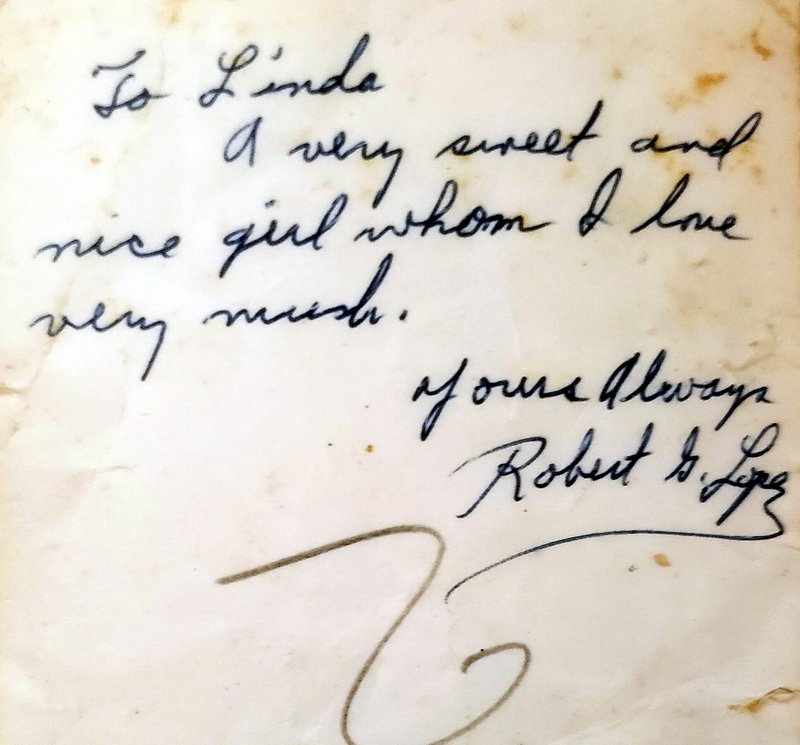 To Linda
A very sweet and
nice girl whom I love
very much.
Yours Always
Robert G. Lopez